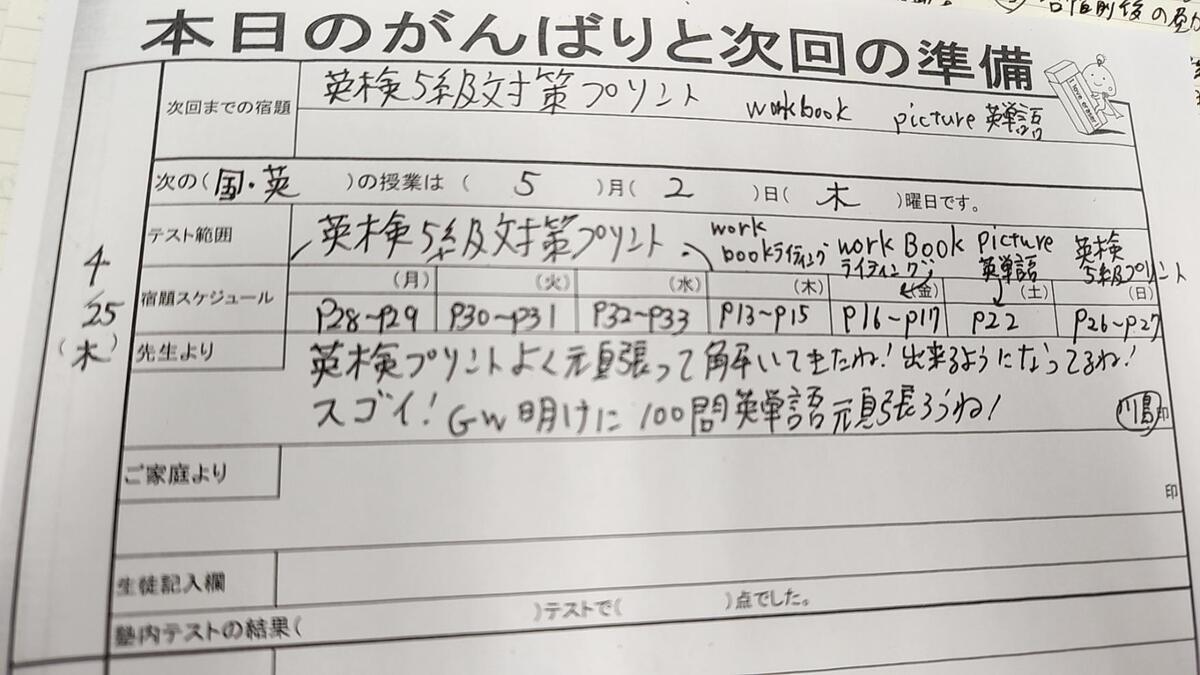 本日のがんばりと次回の準備
次回までの宿題
英検5級対策プリント workbook picture英単語
次の(国・英)の授業は(5)月(2)日(木)曜日です。
4/25(木)
テスト範囲
英検5級対策プリント
work bookライティング
work Book ライティング
picture 英単語
英検5級プリント
宿題スケジュール
(月) (火) (水) (木) (金) (土) (日)
P28~P29 P30~P31 P32~P33 P13~P15 P16~P17 P22 P26~P27
先生より
英検プリントよく頑張って解いてきたね!出来るようになってるね!
スゴイ!GW明けに100問英単語頑張ろうね!
川島
印
ご家庭より
印
生徒記入欄
塾内テストの結果( )テストで( )点でした。